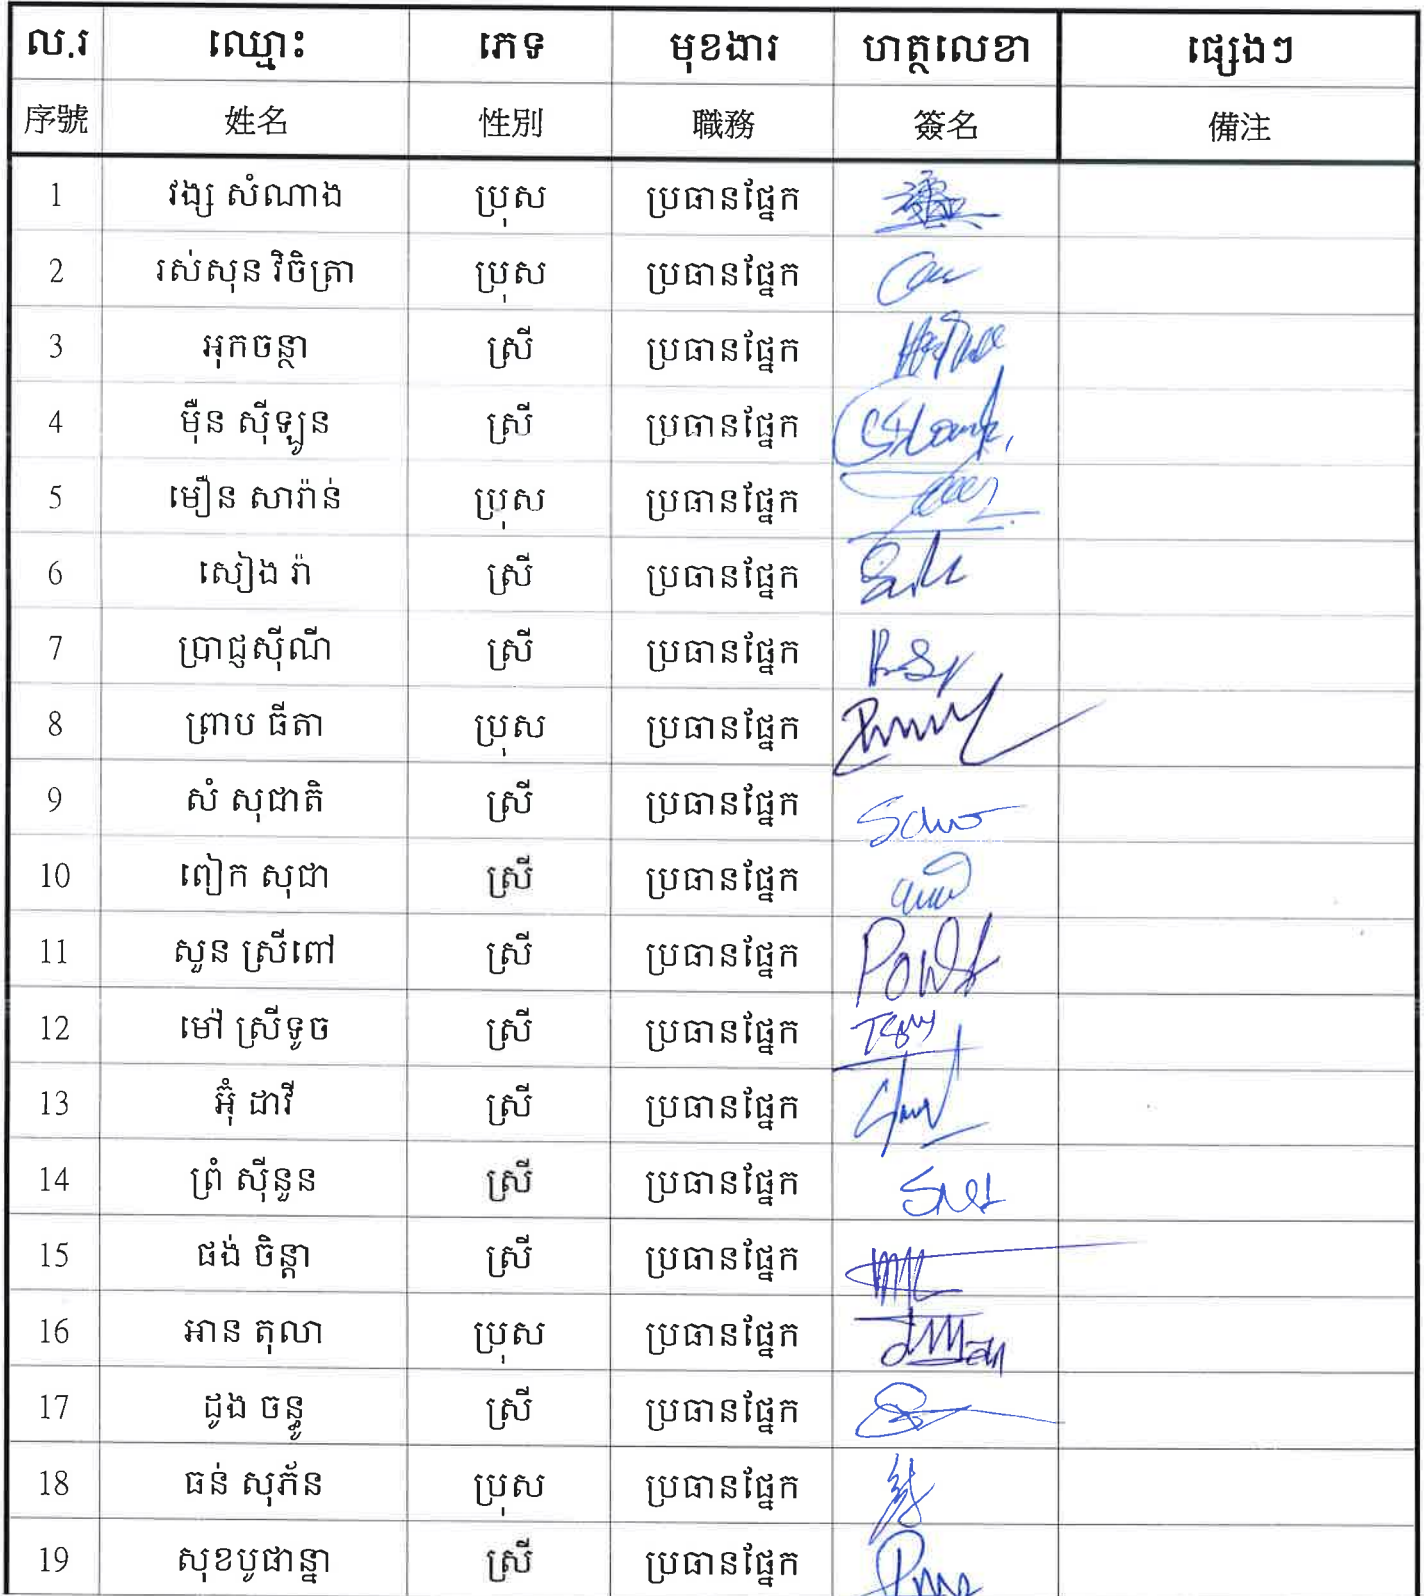 ល.រ ឈ្មោះ ភេទ មុខងារ ហត្ថលេខា ផ្សេងៗ
序號 姓名 性別 職務 簽名 備注
1 វង្ស សំណាង ប្រុស ប្រធានផ្នែក
2 រស់សុន វិចិត្រា ប្រុស ប្រធានផ្នែក
3 អុកចន្ថា ស្រី ប្រធានផ្នែក
4 ម៉ឺន ស៊ីឡូន ស្រី ប្រធានផ្នែក
5 មឿន សារ៉ាន់ ប្រុស ប្រធានផ្នែក
6 សៀង រ៉ា ស្រី ប្រធានផ្នែក
7 ប្រាជ្ញស៊ីណី ស្រី ប្រធានផ្នែក
8 ព្រាប ធីតា ប្រុស ប្រធានផ្នែក
9 សំ សុជាតិ ស្រី ប្រធានផ្នែក
10 ពៀក សុជា ស្រី ប្រធានផ្នែក
11 សួន ស្រីពៅ ស្រី ប្រធានផ្នែក
12 មៅ ស្រីទូច ស្រី ប្រធានផ្នែក
13 អ៊ុំ ដាវី ស្រី ប្រធានផ្នែក
14 ព្រំ ស៊ីនួន ស្រី ប្រធានផ្នែក
15 ផង់ ចិន្តា ស្រី ប្រធានផ្នែក
16 អាន តុលា ប្រុស ប្រធានផ្នែក
17 ដូង ចន្ធូ ស្រី ប្រធានផ្នែក
18 ធន់ សុភ័ន ប្រុស ប្រធានផ្នែក
19 សុខបូផាន្នា ស្រី ប្រធានផ្នែក